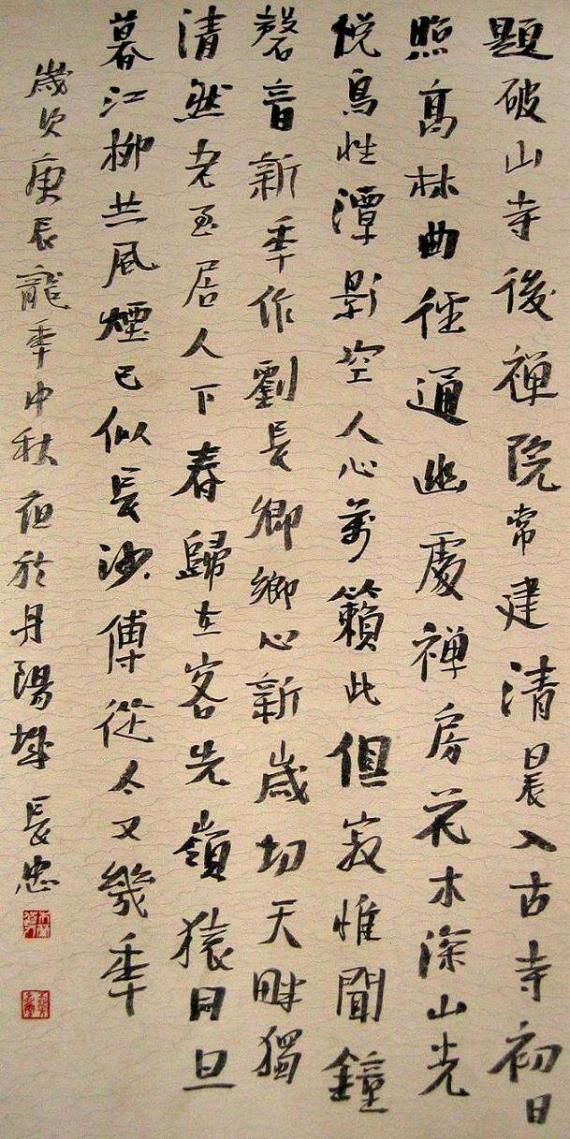 題破山寺後禅院常建清晨入古寺初日
照高林曲徑通幽處禅房花木深山光
悅鳥性潭影空人心萬籟此但寂惟聞鐘
磬音新年作劉長卿鄉心新歲切天畔獨
清然老至居人下春歸在客先嶺猿同旦
暮江柳共風煙已似長沙傅從今又幾年
歲次庚辰龍年中秋於丹陽長忠